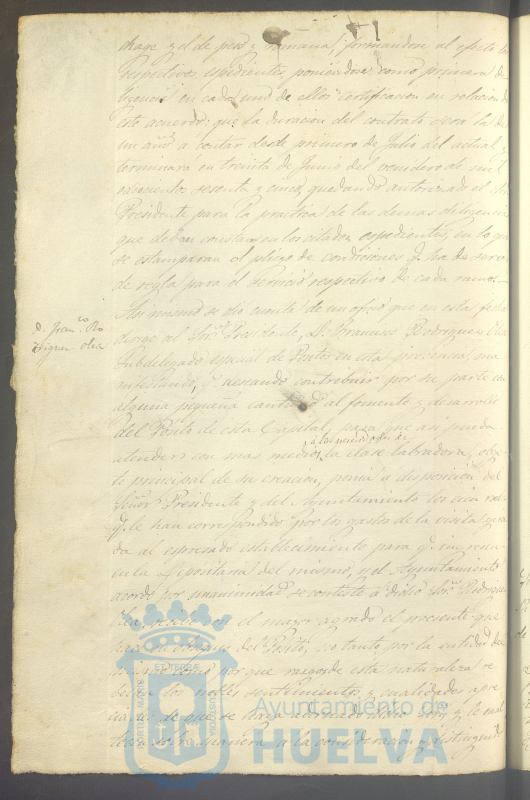 y el de peso y romana, formandose al efecto los
respectivos espedientes poniendose como primera di
ligencia en cada uno de ellos certificacion en relacion de
este acuerdo: que la duracion del contrato sean las de
un año a contar desde primero de Julio del actual y
terminará en treinta de Junio del venidero de mil
ochocientos sesenta y cinco, quedando autorizado el Sor.
Presidente para la practica de las demas diligencias
que deban constar en los citados espedientes, en lo que
se estamparan el pliego de condiciones q. ha de servir
de regla para el servicio respectivo de cada ramo.
D. Fran.co Ro
driguez Olea
Asi mismo se dió cuenta de un oficio que en esta fecha
dirige al Sor. Presidente, D. Francisco Rodriguez Olea
Subdelegado especial de Positos en esta provincia, ma
nifestando, q. deseando contribuir por su parte con
alguna pequeña cantidad al fomento y desarrollo
del Posito de esta Capital, para que asi pueda
a las necesidades de
atender con mas medios la clase labradora, obje
to principal de su creacion, ponia a disposicion del
Señor Presidente y del Ayuntamiento los
q. le han correspondido por los gastos de la visita gira
da al espresado establecimiento para q. ingresen
en la Depositaria del mismo, y el Ayuntamiento
acordó por unanimidad se conteste á dicho Sor. Rodriguez
Olea, el mayor agrado el
del Posito, no tanto por la entidad del
como por que rasgos de esta naturaleza re
los nobles sentimientos y cualidades apre
de que se halla adornado dicho Sor. y le
manera a la consideracion y distinguid
ET TERRAE
PORTUS MARIS
CUSTODIA
Ayuntamiento de
HUELVA